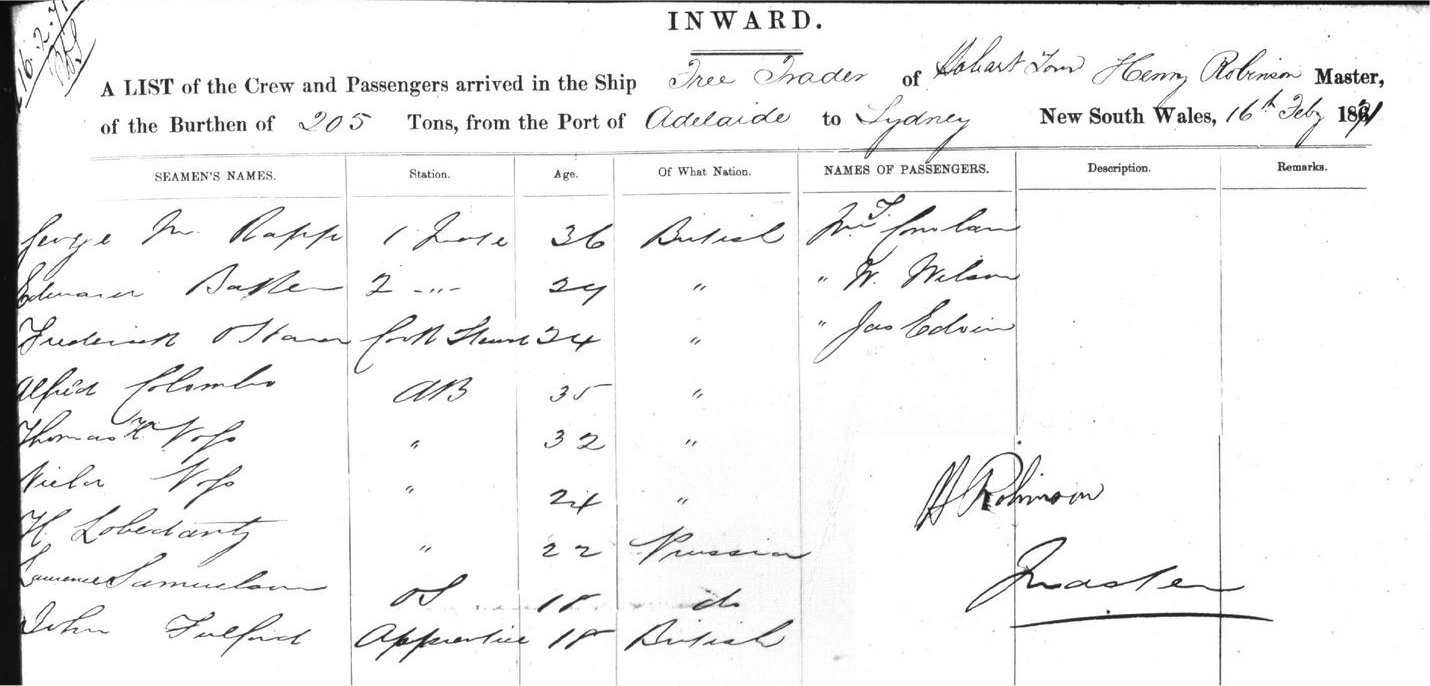 16.2.71
INWARD.
A LIST of the Crew and Passengers arrived in the Ship Free Trader of Hobart Town Henry Robinson Master,
of the Burthen of 205 Tons, from the Port of Adelaide to Sydney New South Wales, 16th Feby 1871
SEAMEN'S NAMES. Station. Age. Of What Nation. NAMES OF PASSENGERS. Description. Remarks.
George M. Rapp 1 Mate 36 British Mr T. Conlan
Edward Baker 2 -"- 24 " " W. Wilson
Frederick O'Hara Cook Stewd 24 " " Jas Edwin
Alfred Colombo AB 35 "
Thomas Voss " 32 "
Victor Voss " 24 "
H. Lobedantz " 22 Prussian
Laurence Samuelson OS 18 do
John Fulford Apprentice 18 British
H Robinson
Master